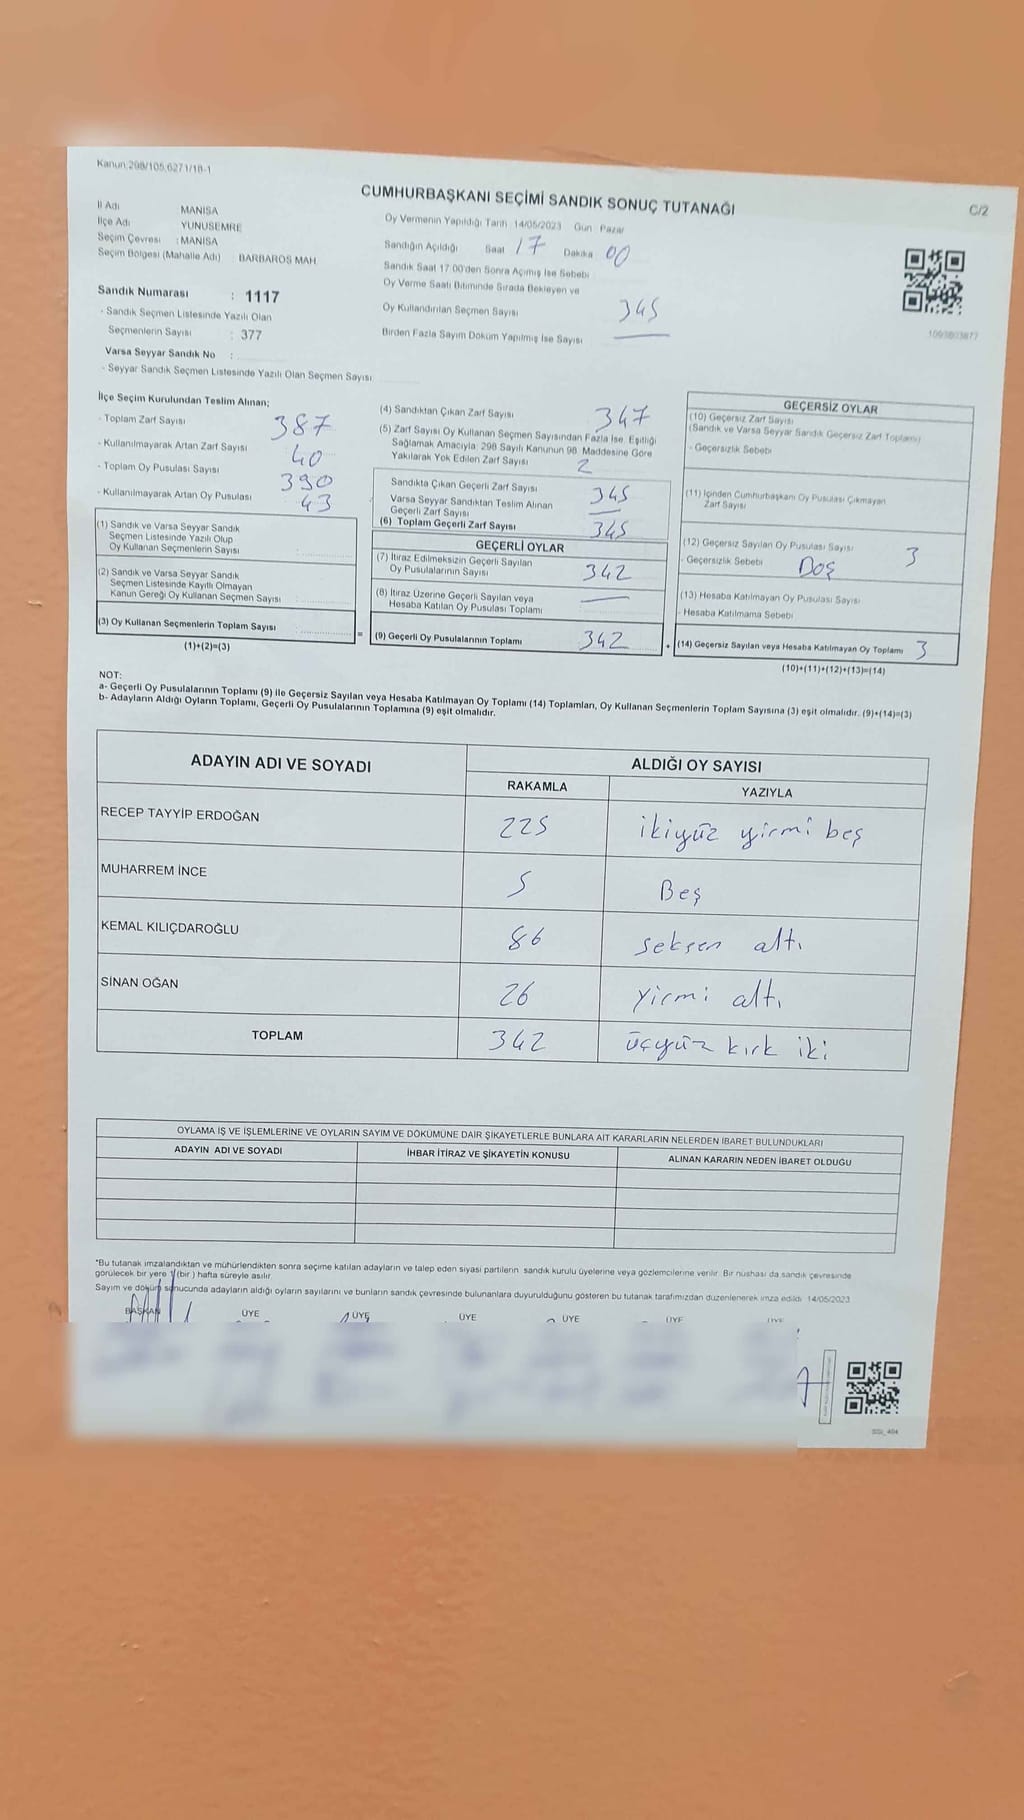 Kanun:298/105,6271/18-1
CUMHURBAŞKANI SEÇİMİ SANDIK SONUÇ TUTANAĞI
C/2
İl Adı MANİSA
İlçe Adı YUNUSEMRE
Seçim Çevresi : MANİSA
Seçim Bölgesi (Mahalle Adı) : BARBAROS MAH.
Oy Vermenin Yapıldığı Tarih 14/05/2023 Gün Pazar
Sandığın Açıldığı Saat 17 Dakika 00
Sandık Saat 17:00'den Sonra Açılmış İse Sebebi
Oy Verme Saati Bitiminde Sırada Bekleyen ve
Oy Kullandırılan Seçmen Sayısı 345
Birden Fazla Sayım Döküm Yapılmış İse Sayısı
Sandık Numarası : 1117
- Sandık Seçmen Listesinde Yazılı Olan
Seçmenlerin Sayısı : 377
Varsa Seyyar Sandık No :
- Seyyar Sandık Seçmen Listesinde Yazılı Olan Seçmen Sayısı
İlçe Seçim Kurulundan Teslim Alınan;
- Toplam Zarf Sayısı 387
- Kullanılmayarak Artan Zarf Sayısı 40
- Toplam Oy Pusulası Sayısı 390
- Kullanılmayarak Artan Oy Pusulası 43
(1) Sandık ve Varsa Seyyar Sandık
Seçmen Listesinde Yazılı Olup
Oy Kullanan Seçmenlerin Sayısı
(2) Sandık ve Varsa Seyyar Sandık
Seçmen Listesinde Kayıtlı Olmayan
Kanun Gereği Oy Kullanan Seçmen Sayısı
(3) Oy Kullanan Seçmenlerin Toplam Sayısı =
(1)+(2)=(3)
(4) Sandıktan Çıkan Zarf Sayısı 347
(5) Zarf Sayısı Oy Kullanan Seçmen Sayısından Fazla İse, Eşitliği
Sağlamak Amacıyla; 298 Sayılı Kanunun 98. Maddesine Göre
Yakılarak Yok Edilen Zarf Sayısı 2
Sandıkta Çıkan Geçerli Zarf Sayısı 345
Varsa Seyyar Sandıktan Teslim Alınan
Geçerli Zarf Sayısı
(6) Toplam Geçerli Zarf Sayısı 345
GEÇERLİ OYLAR
(7) İtiraz Edilmeksizin Geçerli Sayılan
Oy Pusulalarının Sayısı 342
(8) İtiraz Üzerine Geçerli Sayılan veya
Hesaba Katılan Oy Pusulası Toplamı
(9) Geçerli Oy Pusulalarının Toplamı 342 +
GEÇERSİZ OYLAR
(10) Geçersiz Zarf Sayısı
(Sandık ve Varsa Seyyar Sandık Geçersiz Zarf Toplamı)
- Geçersizlik Sebebi
(11) İçinden Cumhurbaşkanı Oy Pusulası Çıkmayan
Zarf Sayısı
(12) Geçersiz Sayılan Oy Pusulası Sayısı 3
- Geçersizlik Sebebi Boş
(13) Hesaba Katılmayan Oy Pusulası Sayısı
- Hesaba Katılmama Sebebi
(14) Geçersiz Sayılan veya Hesaba Katılmayan Oy Toplamı 3
(10)+(11)+(12)+(13)=(14)
NOT:
a- Geçerli Oy Pusulalarının Toplamı (9) ile Geçersiz Sayılan veya Hesaba Katılmayan Oy Toplamı (14) Toplamları, Oy Kullanan Seçmenlerin Toplam Sayısına (3) eşit olmalıdır. (9)+(14)=(3)
b- Adayların Aldığı Oyların Toplamı, Geçerli Oy Pusulalarının Toplamına (9) eşit olmalıdır.
ADAYIN ADI VE SOYADI
ALDIĞI OY SAYISI
RAKAMLA YAZIYLA
RECEP TAYYİP ERDOĞAN 225 ikiyüz yirmi beş
MUHARREM İNCE 5 Beş
KEMAL KILIÇDAROĞLU 86 seksen altı
SİNAN OĞAN 26 Yirmi altı
TOPLAM 342 üçyüz kırk iki
OYLAMA İŞ VE İŞLEMLERİNE VE OYLARIN SAYIM VE DÖKÜMÜNE DAİR ŞİKAYETLERLE BUNLARA AİT KARARLARIN NELERDEN İBARET BULUNDUKLARI
ADAYIN ADI VE SOYADI İHBAR İTİRAZ VE ŞİKAYETİN KONUSU ALINAN KARARIN NEDEN İBARET OLDUĞU
*Bu tutanak imzalandıktan ve mühürlendikten sonra seçime katılan adayların ve talep eden siyasi partilerin sandık kurulu üyelerine veya gözlemcilerine verilir. Bir nüshası da sandık çevresinde
görülecek bir yere 1 (bir) hafta süreyle asılır.
Sayım ve döküm sonucunda adayların aldığı oyların sayılarını ve bunların sandık çevresinde bulunanlara duyurulduğunu gösteren bu tutanak tarafımızdan düzenlenerek imza edildi. 14/05/2023
BAŞKAN ÜYE ÜYE ÜYE ÜYE ÜYE ÜYE